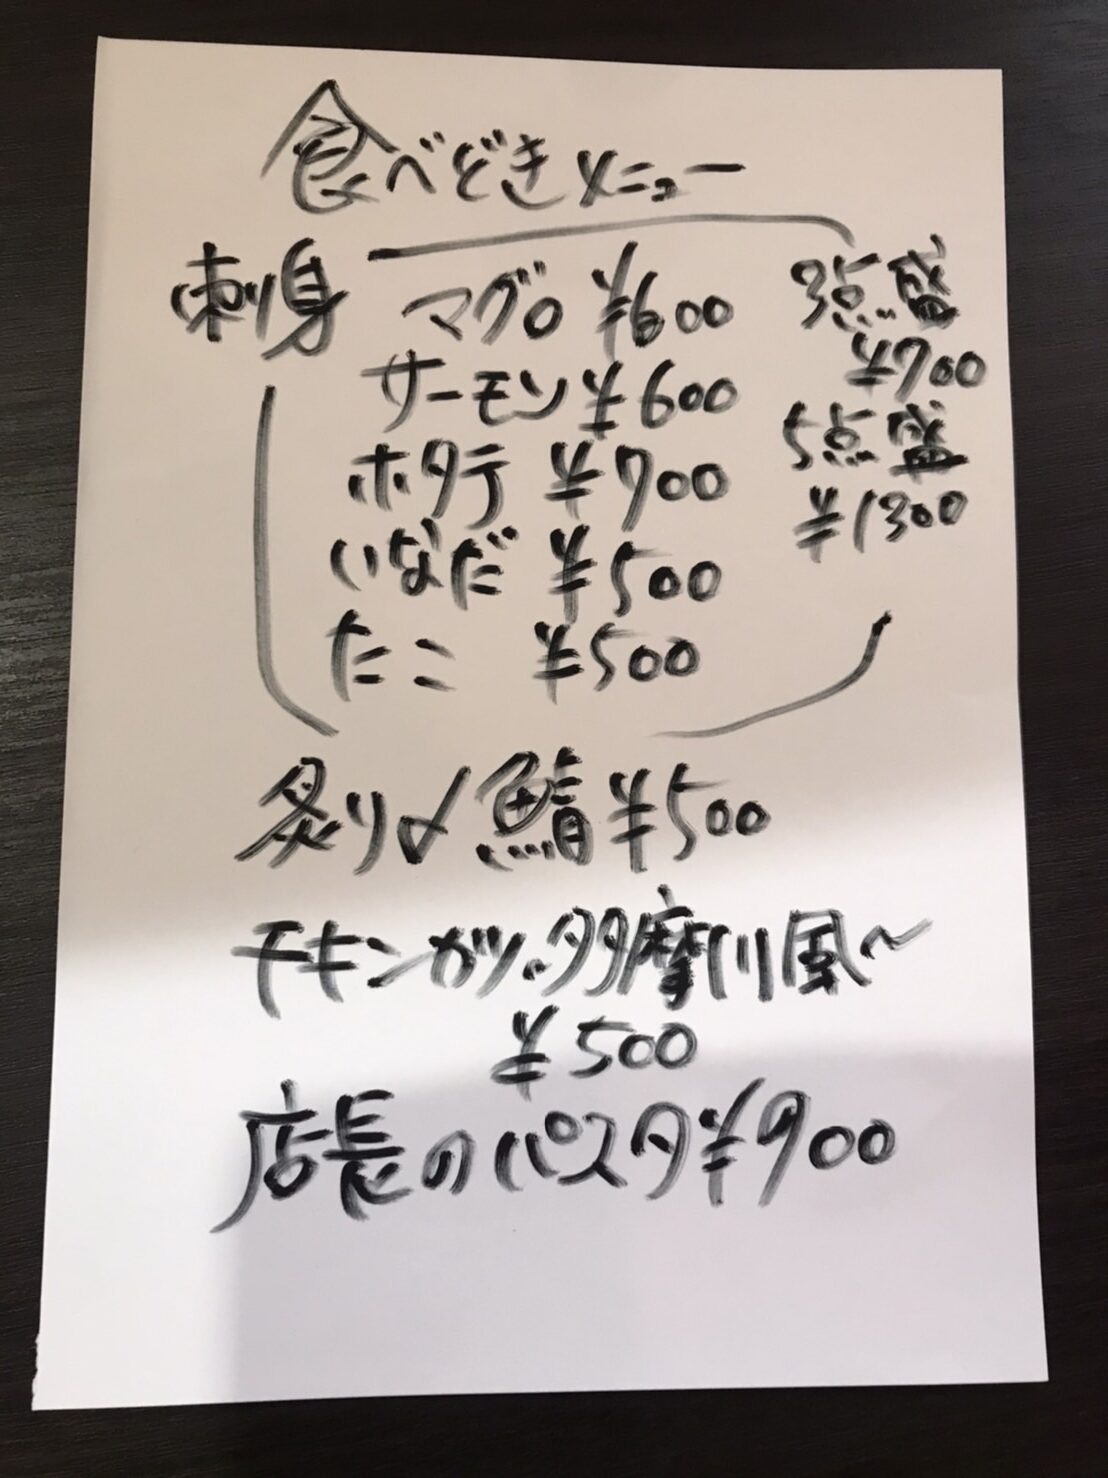 食べどきメニュー
刺身
マグロ ¥600
サーモン ¥600
ホタテ ¥700
いなだ ¥500
たこ ¥500
3点盛
¥700
5点盛
¥1300
炙り〆鯖 ¥500
チキンカツ~多摩川風~
¥500
店長のパスタ ¥900